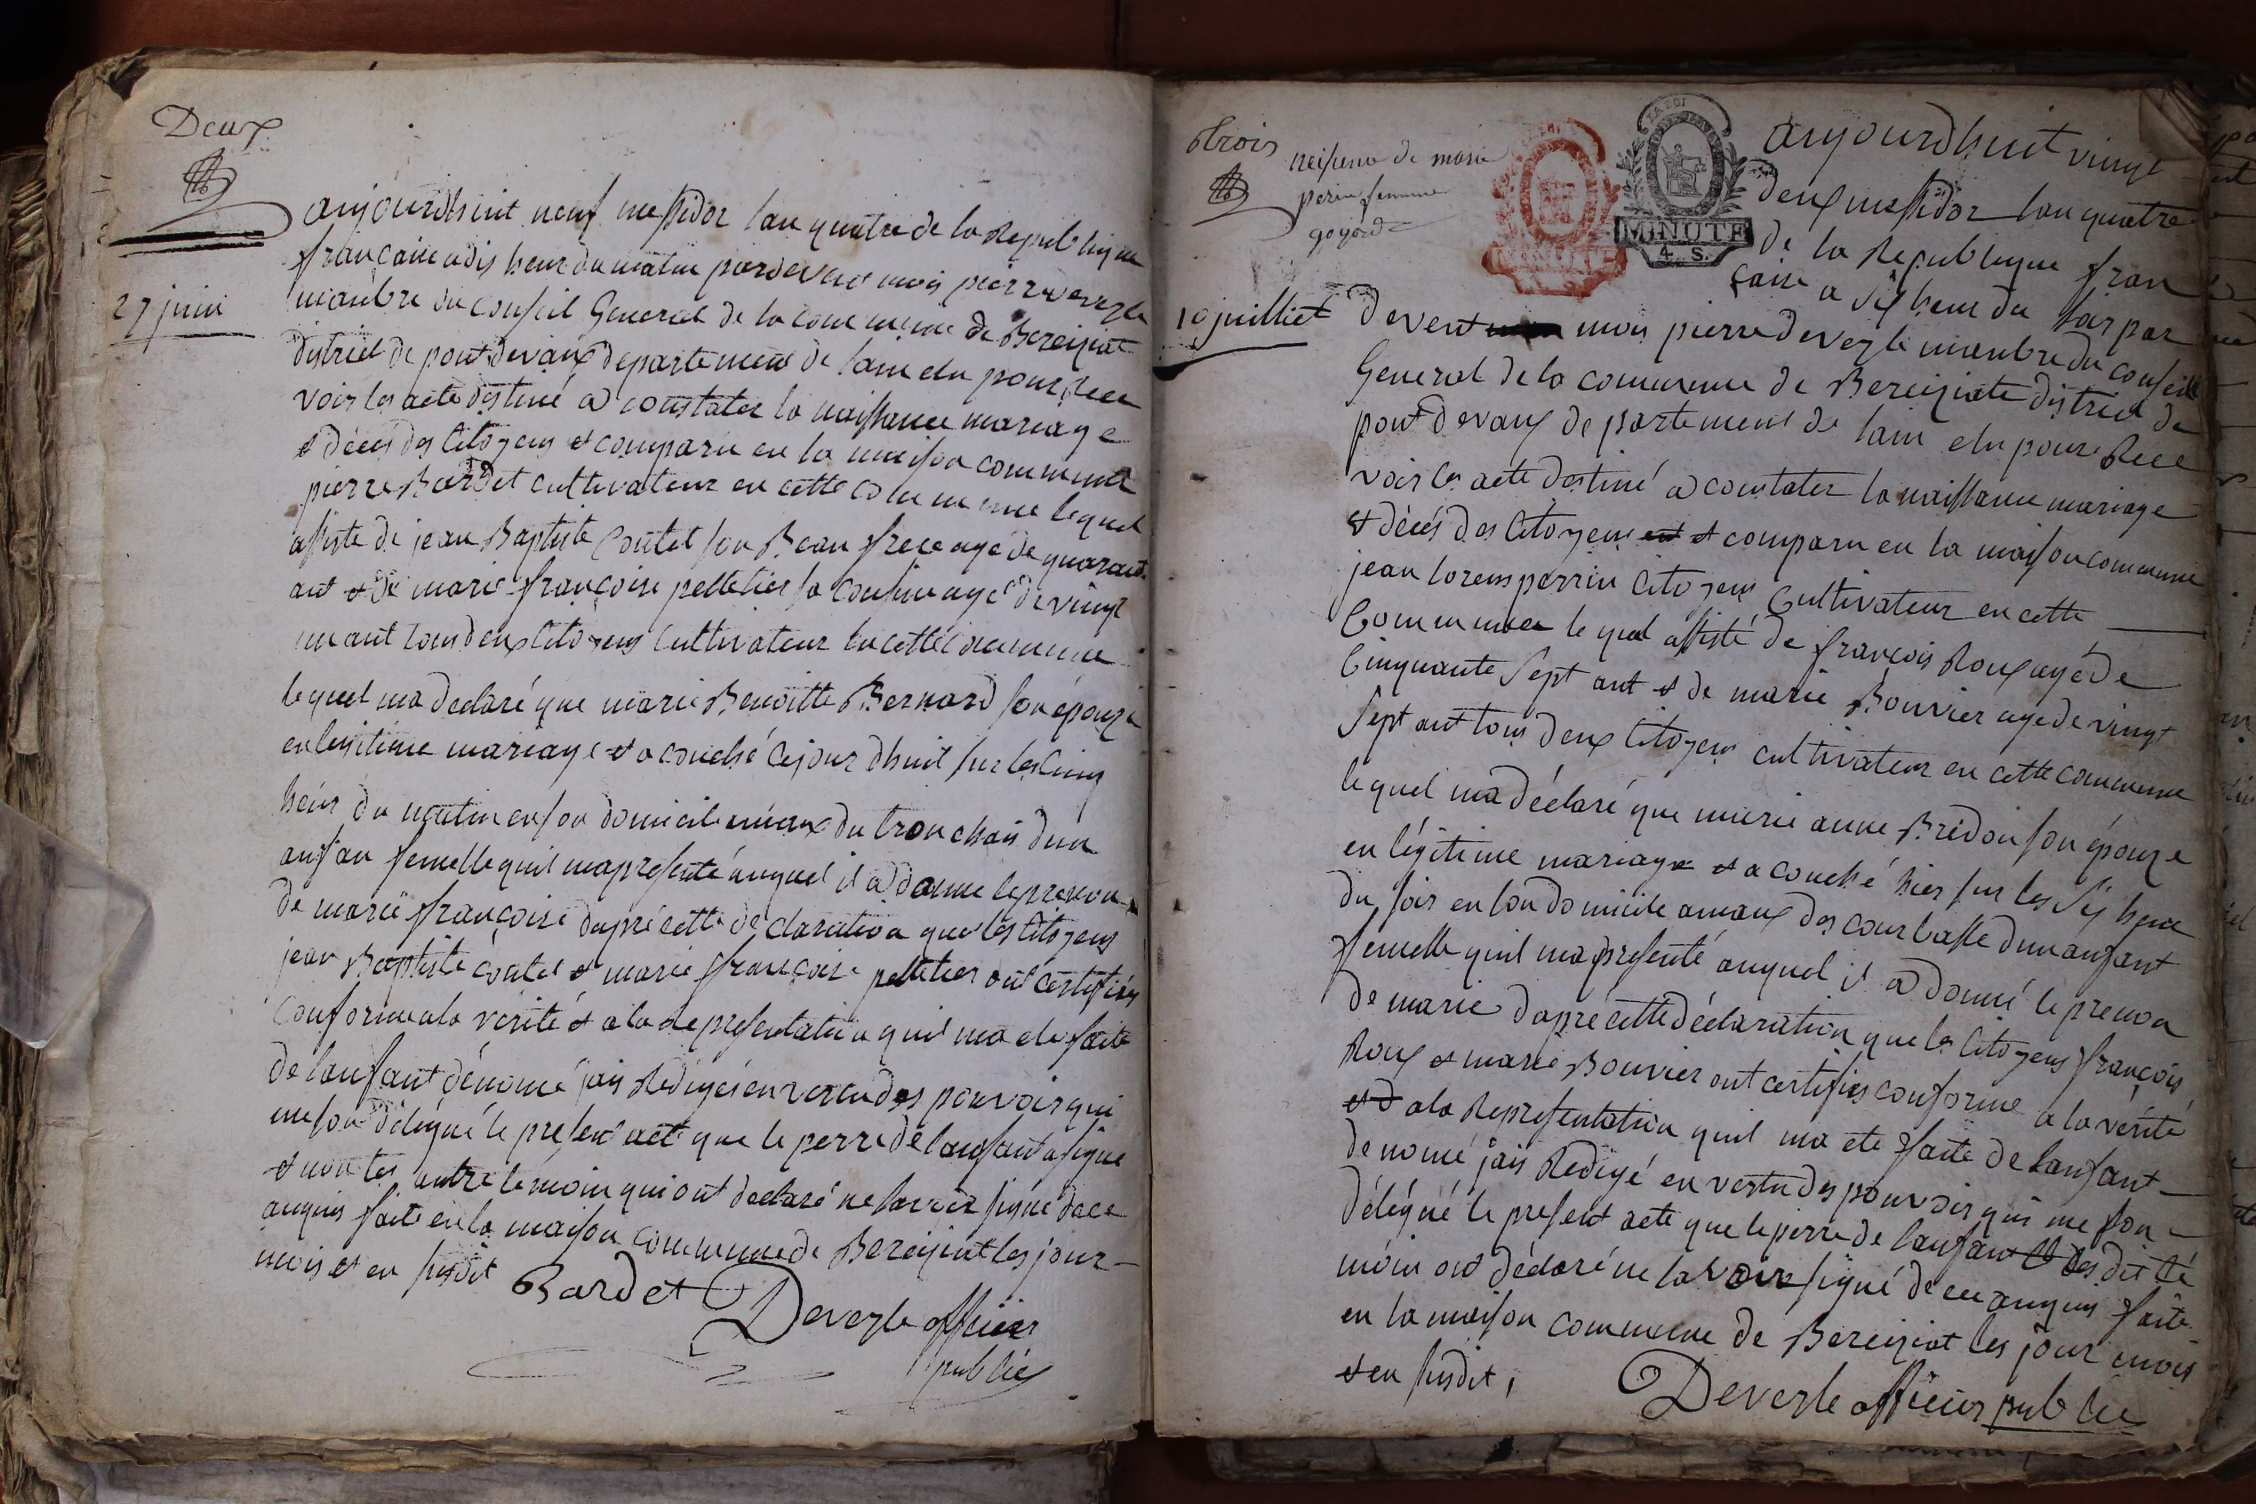 Deux
27 juin
aujourdhuit neuf messidor lan quatre de la Republique
francaise a dis heur du matin pardevent mois pierre deveyle
manbre du conseil General de la commune de Bereiziat
district de pont devaux departement de lain elu pour rece
voir les acte destiné a constater la naissance mariage
et décés des Citoyens et comparu en la maison commune
pierre Bardet cultivateur en cette commune lequel
assiste de jean Baptiste Contet son Beau frere agé de quarant
ant et de marie françoise pelletier sa cousine agé de vingt
un ant tous deux Citoyens Cultivateur en cette commune
le quel ma declaré que marie Benoitte Bernard son épouze
en legitime mariage et a couché cejourdhuit sur les cinq
heur du matin en son domicile du tronchais dun
anfan femelle quil ma presenté auquel il a donne le prenon
de marie françoise daprè cette declaration que les Citoyens
jean Baptiste contet et marie françoise pelletier ont certifiés
conforme a la vérité et a la Representation quil ma ete faite
de lanfant dénomé jais Redigés en vertu des pouvoir qui
me son délégué le presen acte que le perre de lanfant a signe
et non les autre temoin qui ont declaré ne savoir signé de ce
anquis faite en la maison commune de Bereiziat les jour
mois et en susdit Bardet
Deveyle officier
public
trois
neissence de marie
perin femme
goyard
10 juilliet
MINUTE
4. S.
aujourdhuit vingt
deux messidor lan quatre
de la Republique fran
caise a six heur du soir par
devent mois pierre deveyle manbre du conseill
General de la commune de Bereiziate district de
pont devaux departement de lain elu pour Rece
voir les acte destiné a constater la naissance mariage
et décés des Citoyens et comparu en la maison commune
jean lorens perrin Citoyens Cultivateur en cette
Commune le quel assisté de françois Roux agé de
Cinquante Sept ant et de marie Bouvier age de vingt
Sept ant tous deux Citoyens cultivateur en cette commune
le quel ma déclaré que marie anne Bredon son épouze
en légitime mariage et a couché hier sur les Six heur
du soir en son domicile amaux des courbasse dun anfant
femelle quil ma presenté auquel il a donné le prenon
de marie daprè cette déclaration que les Citoyens françois
Roux et marie Bouvier ont certifiés conforme a la vérité
et a la Representation quil ma ete faite de lanfant
denomé jais Redigé en vertu des pouvoir qui me son
délégué le present acte que le perre de lanfant dit te
moin ont déclaré ne savoir signé de ce anquis faite
en la maison commune de Bereiziat les jour mois
et en susdit,
Deveyle officier public